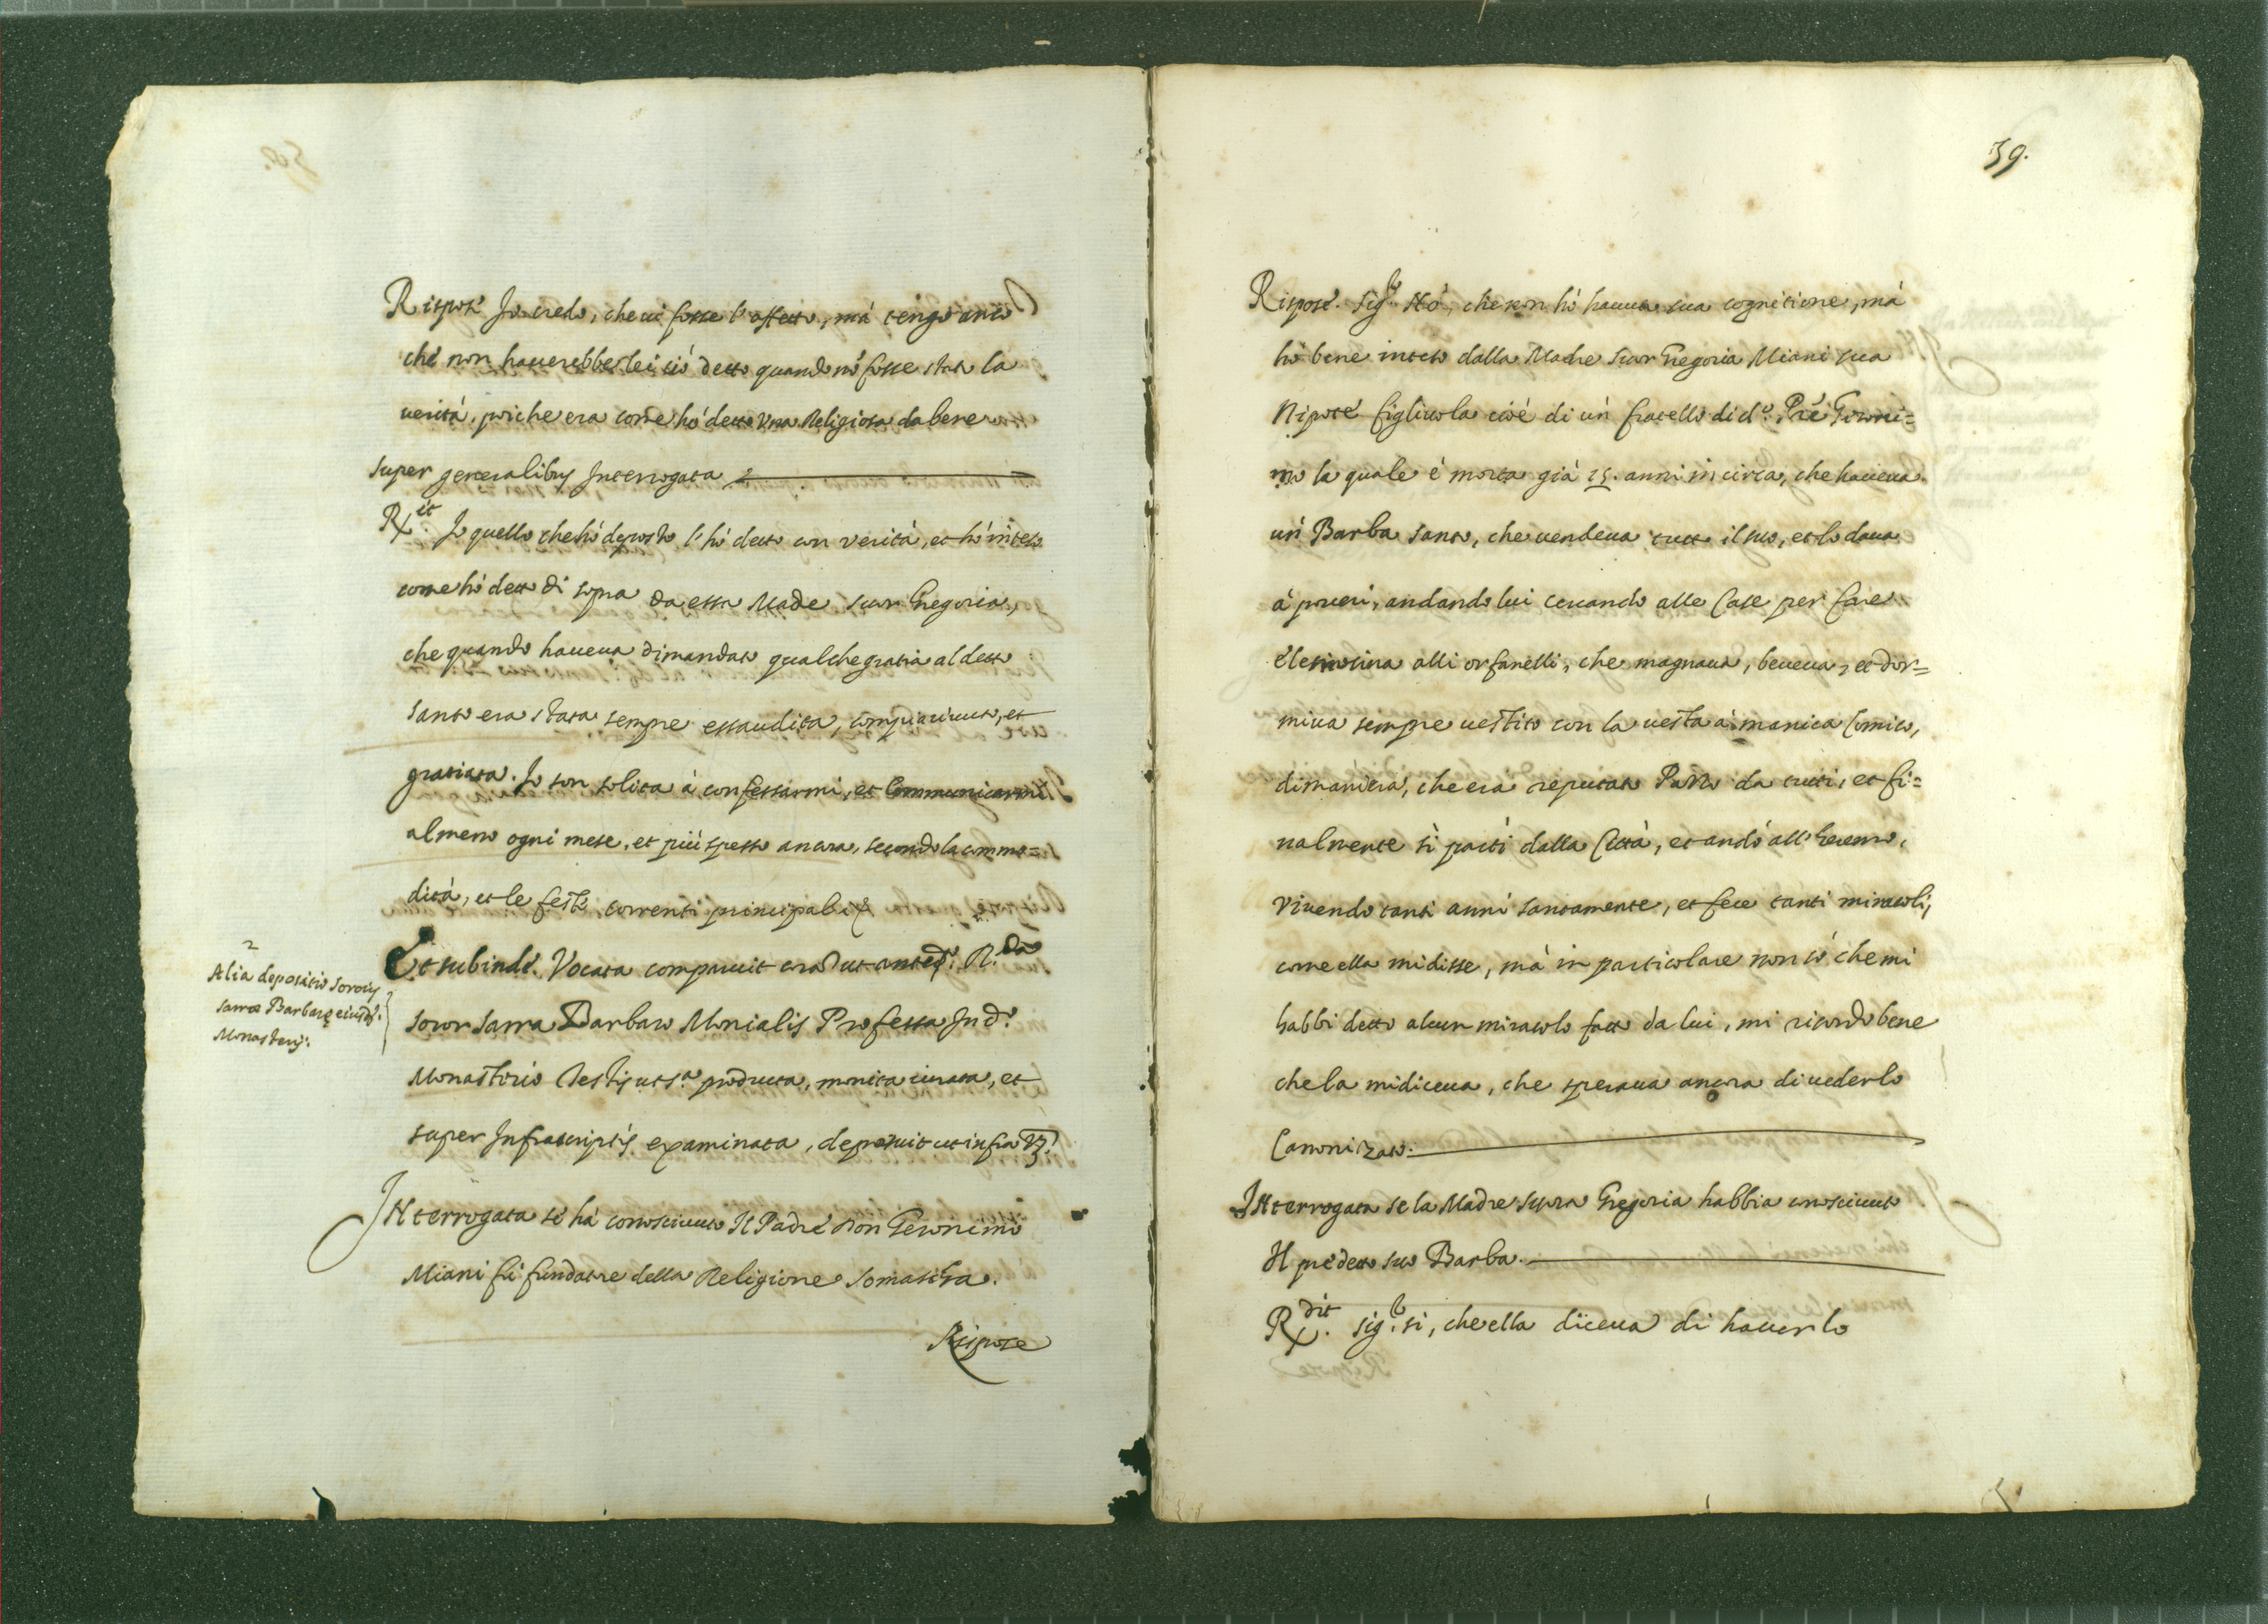 Rispose Io credo, che ui fosse l'affetto, mà tengo anco
che non hauerebbe lei ciò detto quando nō fosse stata la
uerità, poiche era come hò detto Vna Religiosa da bene
super generalibus Interrogata
Rx.it Io quello che hò deposto l'hò detto con verità, et hò inteso
come hò detto di sopra da essa Madre suor Gregoria,
che quando haueua dimandato qualche gratia al detto
santo era stata sempre essaudita, compiaciuta, et
gratiata. Io son solita à confessarmi, et Communicarmi
almeno ogni mese, et più spesso ancora, secondo la commo=
dità, et le feste correnti principali
2
Alia depositio Soror.s
Sarræ Barbarę eiusd.
Monasterij.
Et subinde. Vocata comparuit corā ut anted. R.da
soror Sarra Barbaro Monialis Professa In d.o
Monasterio Testis ut s.a producta, monita iurata, et
super Infrascriptis examinata, deposuit ut infra Vz.
INterrogata se hà conosciuto Il Padre Don Geronimo
Miani fù fundatore della Religione Somascha.
Rispose
59.
Rispose. Sig.r Nò, che non hò hauuta sua cognitione, mà
hò bene inteso dalla Madre Suor Gregoria Miani sua
Nipote figliuola cioè di un fratello di d.o Pr̄e Geroni=
mo la quale è morta già 25. anni in circa, che haueua
un Barba santo, che uendeua tutto il suo, et lo daua
à poueri, andando lui cercando alle Case per fare
elemosina alli orfanelli, che magnaua, beueua, et dor=
miua sempre uestito con la uesta à manica Comito,
dimaniera, che era reputato Pazzo da tutti, et fi=
nalmente si partì dalla Città, et andò all'Heremo,
Viuendo tanti anni santamente, et fece tanti miracoli,
come ella mi disse, mà in particolare non sò che mi
habbi detto alcun miracolo fatto da lui, mi ricordo bene
che la mi diceua, che speraua ancora di uederlo
Canonizato.
INterrogata se la Madre Suora Gregoria habbia conosciuto
Il predetto suo Barba.
Rx.dit Sig.r si, che ella diceua di hauerlo